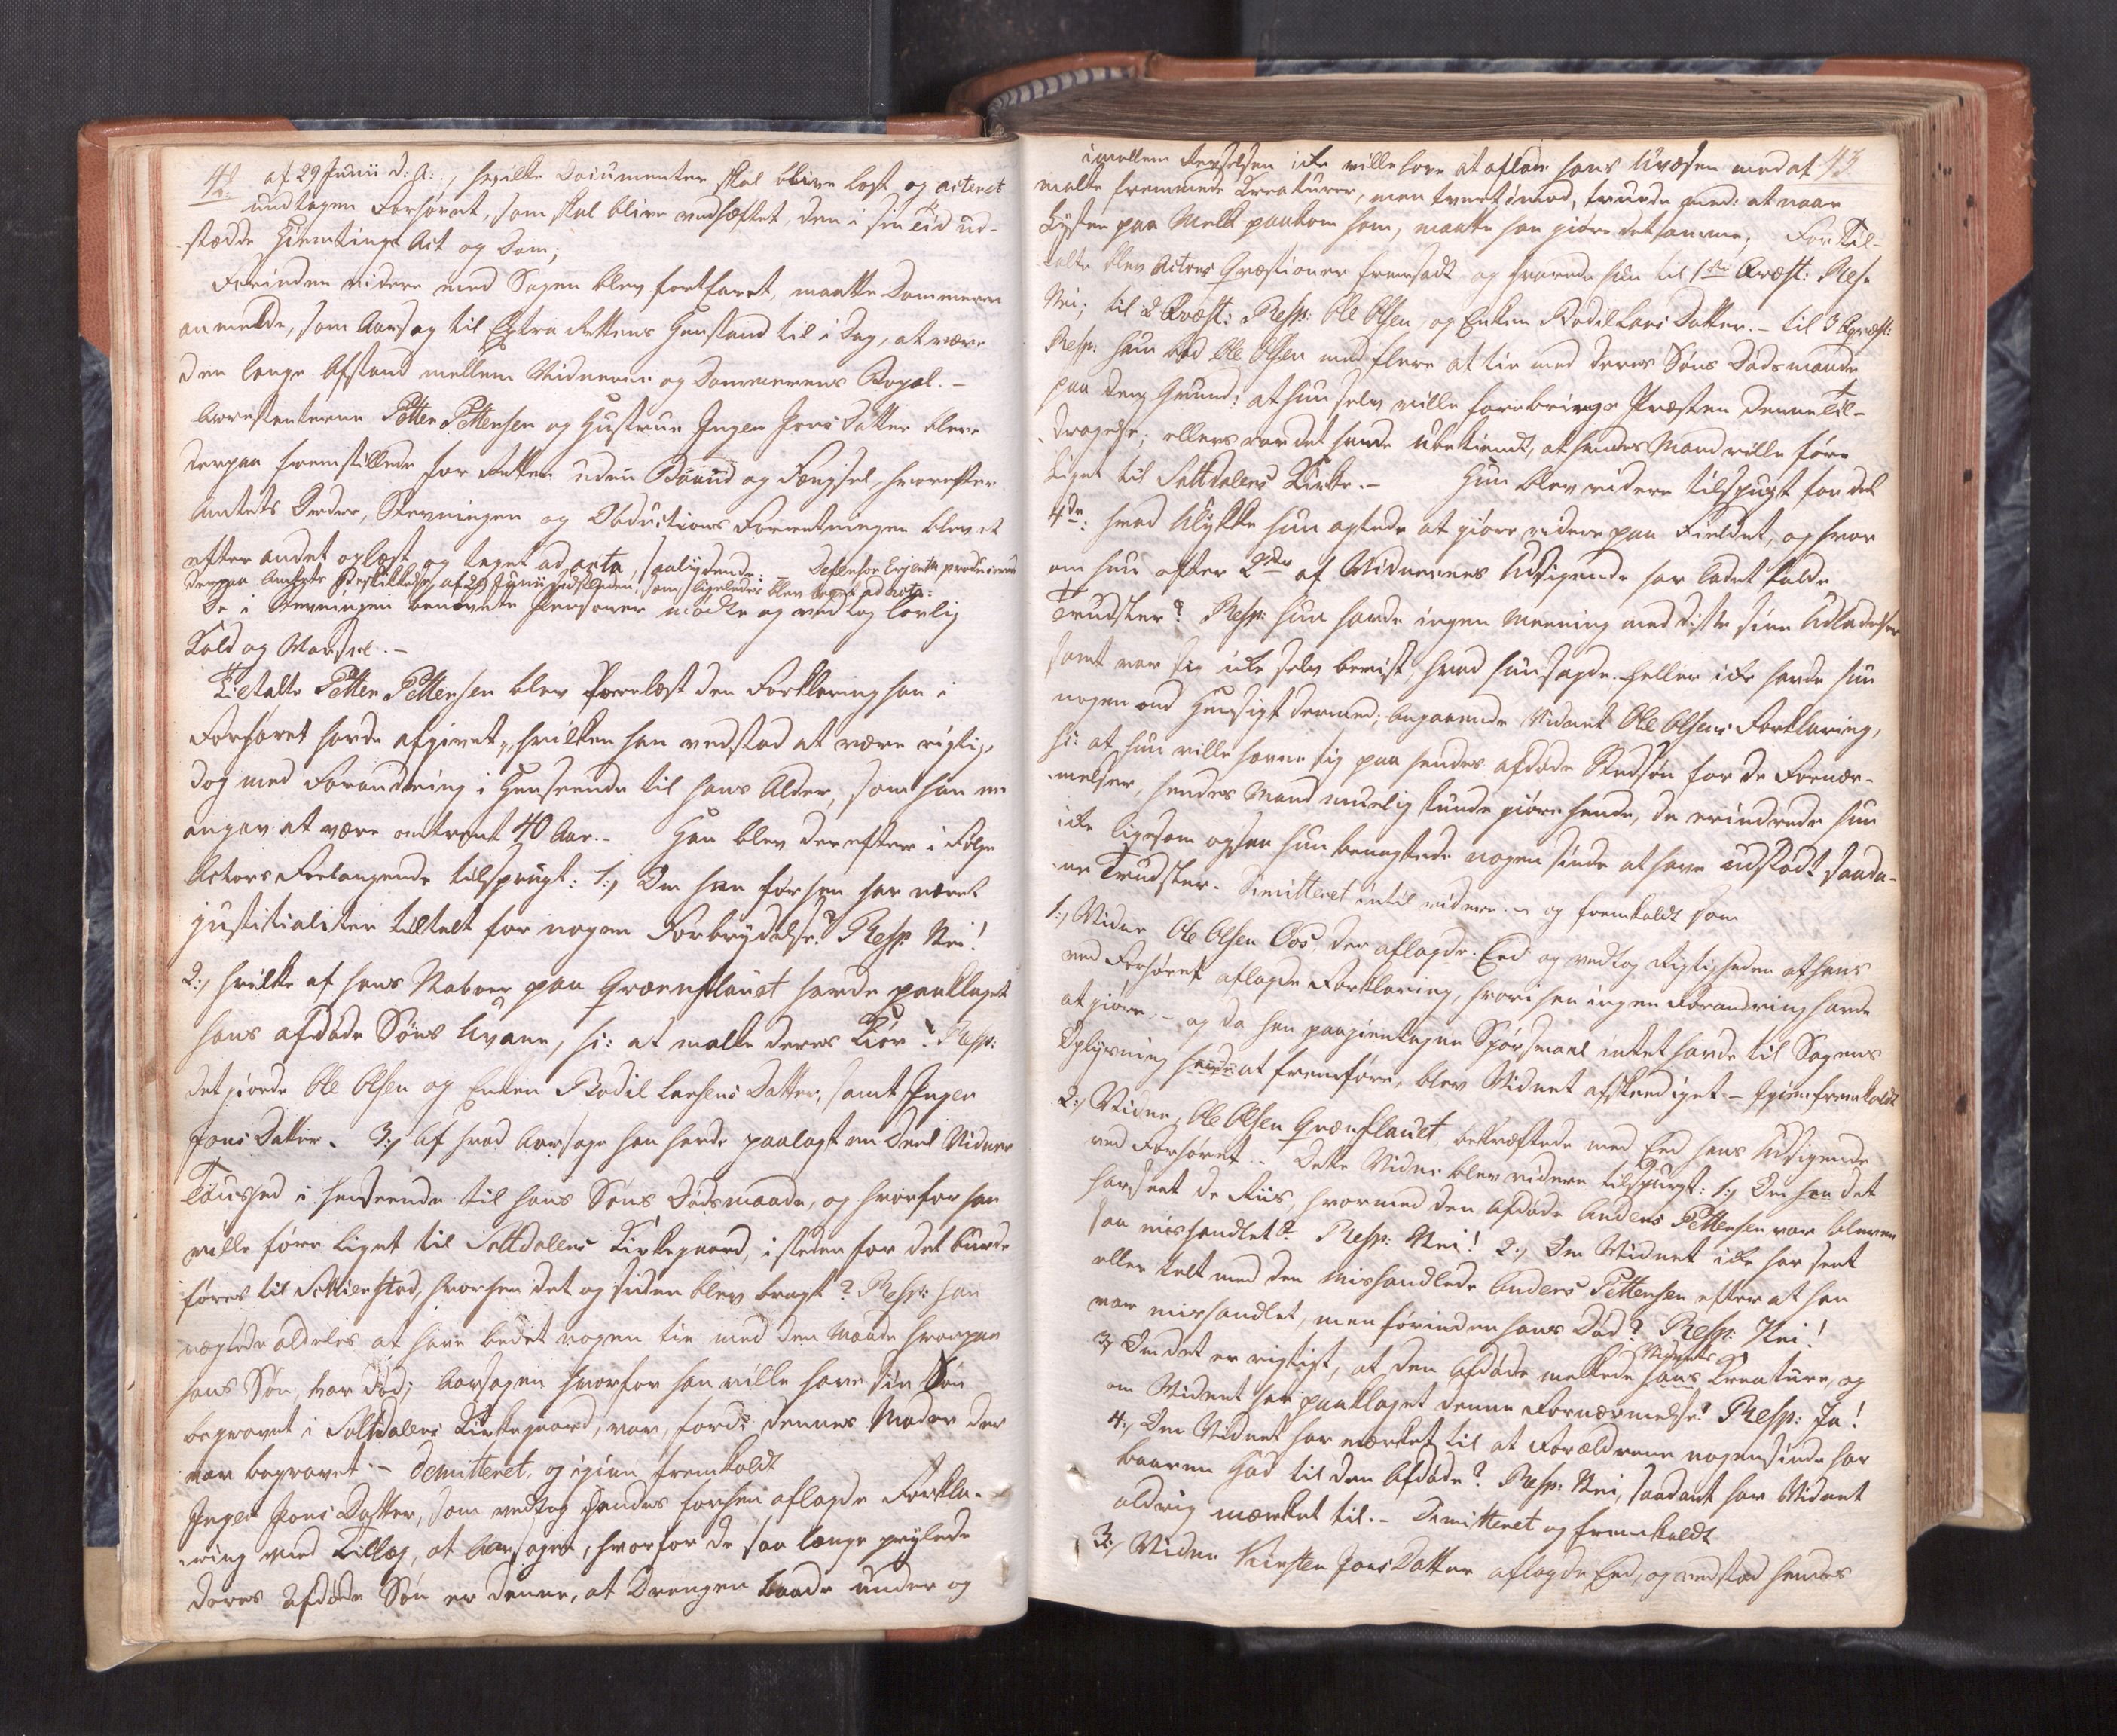 42.
af 29 Junii d: A:, hvilke Documenter skal blive læst og acteret
undtagen Forhøret, som skal blive vedhæftet den i sin Tid ud-
stædde Hiemtings Act og Dom;
Forinden videre med Sagen blev fortfaret, maatte Dommeren
anmelde, som Aarsag til Extra Rettens Henstand til i Dag, at være
den lange Afstand mellem Vidnerne og Dommerens Bopæl. -
Arrestanterne Petter Pettersen og Hustrue Inger Jons Datter bleve
derpaa fremstillede for Retten uden Baand og Fængsel, hvorefter
Amtets Ordre, Stevningen og Obductions Forretningen blev et
efter andet oplæst og taget ad acta, saalydende: Defensor Erjenta producerede
derpaa Amtets Beskikkelse af 29 Junii sidstleden, som ligeledes blev lagt ad acta:
De i Stevningen benævnte Personer mødte og vedtog lovlig
Kald og Varsel. -
Tiltalte Petter Pettersen blev forelæst den Forklaring han i
Forhøret havde afgivet, hvilken han vedstod at være rigtig,
dog med Forandring i Henseende til hans Alder, som han nu
angav at være omtrent 40 Aar. - Han blev derefter i Følge
Actors Forlangende tilspurgt: 1:, Om han før har været
justitialiter tiltalt for nogen Forbrydelse? Resp. Nei!
2:, hvilke af hans Naboer paa Grønflauet havde paaklaget
hans afdøde Søns Uvane, h: at malke deres Kiør? Resp:
det giorde Ole Olsen og Enken Bodil Larsens Datter, samt Inger
Jons Datter. 3:, Af hvad Aarsage han havde paalagt en Deel Vidner
Taushed i Henseende til hans Søns Dødsmaade, og hvorfor han
ville føre Liget til Saltdalens Kirkegaard, isteden for det burde
føres til Skierstad, hvorhen det og siden blev bragt? Resp: han
nægtede aldeles at have bedet nogen tie med den Maade hvorpaa
hans Søn var død; Aarsagen hvorfor han ville have sin Søn
begravet i Saltdalens Kirkegaard, var, fordi dennes Moder der
var begravet. - Demitteret, og igien fremkaldt
Inger Jons Datter, som vedtog hendes forhen aflagde Forkla-
ring med Tillæg, at Aarsagen, hvorfor de saa længe pryglede
deres afdøde Søn er denne, at Drengen baade under og
43
imellem Revselsen ikke ville love at aflade hans Uvæsen med at
malke fremmede Creaturer, men tvertimod, truede med: at naar
Lysten paa Melk paakom ham, maatte han giøre det samme. For Til-
talte blev Actors Qvæstioner fremsadt og svarede hun til 1ste Qvæst: Resp.
Nei; til 2 Qvæst: Resp: Ole Olsen og Enken Bodil Lars Datter. - til 3 Qvæst:
Resp: hun bad Ole Olsen med flere at tie med deres Søns Dødsmaade
paa den Grund: at hun selv ville forebringe Præsten denne Til-
dragelse; ellers var det hende ubekiendt, at hendes Mand ville føre
Liget til Saltdalens Kirke. - Hun blev videre tilspugt for det
4de: hvad Ulykke hun agtede at giøre videre paa Fieldet, og hvor
om hun efter 2det af Vidnernes Udsigende har ladet falde
Trudsler? Resp: hun havde ingen Meening med disse sine Udladelser
samt var sig ikke selv bevist hvad hun sagde. heller ikke havde hun
nogen ond Hensigt dermed; angaaende Vidnet Ole Olsens Forklaring,
h: at hun ville hævne sig paa hendes afdøde Stedsøn for de Fornær-
melser, hendes Mand muelig kunde giøre hende, da erindrede hun
ikke ligesom ogsaa hun benægtede nogen sinde at have udstødt saada-
ne Trudsler. Dimitteret intil videre. - og fremkaldt som
1:, Vidne Ole Olsen Oos, der aflagde Eed og vedtog Rigtigheden af hans
ved Forhøret aflagde Forklaring, hvori han ingen Forandring havde
at giøre. - og da han paa gientagne Spørsmaal intet havde til Sagens
Oplysning at fremføre, blev Vidnet afskeediget. - Igien fremkaldt
2:, Vidne, Ole Olsen Grønflauet bekræftede med Eed hans Udsigende
ved Forhøret. - Dette Vidne blev videre tilspurgt: 1:, Om han det
har seet de Riis, hvormed den Afdøde Anders Pettersen var bleven
saa mishandlet? Resp: Nei! 2:, Om Vidnet ikke har seet
eller talt med den mishandlede Anders Pettersen efter at han
var mishandlet, men førinden hans Død? Resp: Nei!
3, Om det er rigtigt, at den Afdøde melkede hans Vidnets Creature, og
om Vidnet har paaklaget denne Fornærmelse? Resp: Ja!
4:, Om Vidnet har mærket til at Forældrene nogensinde har
baaren Had til den Afdøde? Resp: Nei, saadant har Vidnet
aldrig mærket til. - Dimitteret og fremkaldt
3:, Vidne Kirsten Jons Datter aflagde Eed, og vedstod hendes